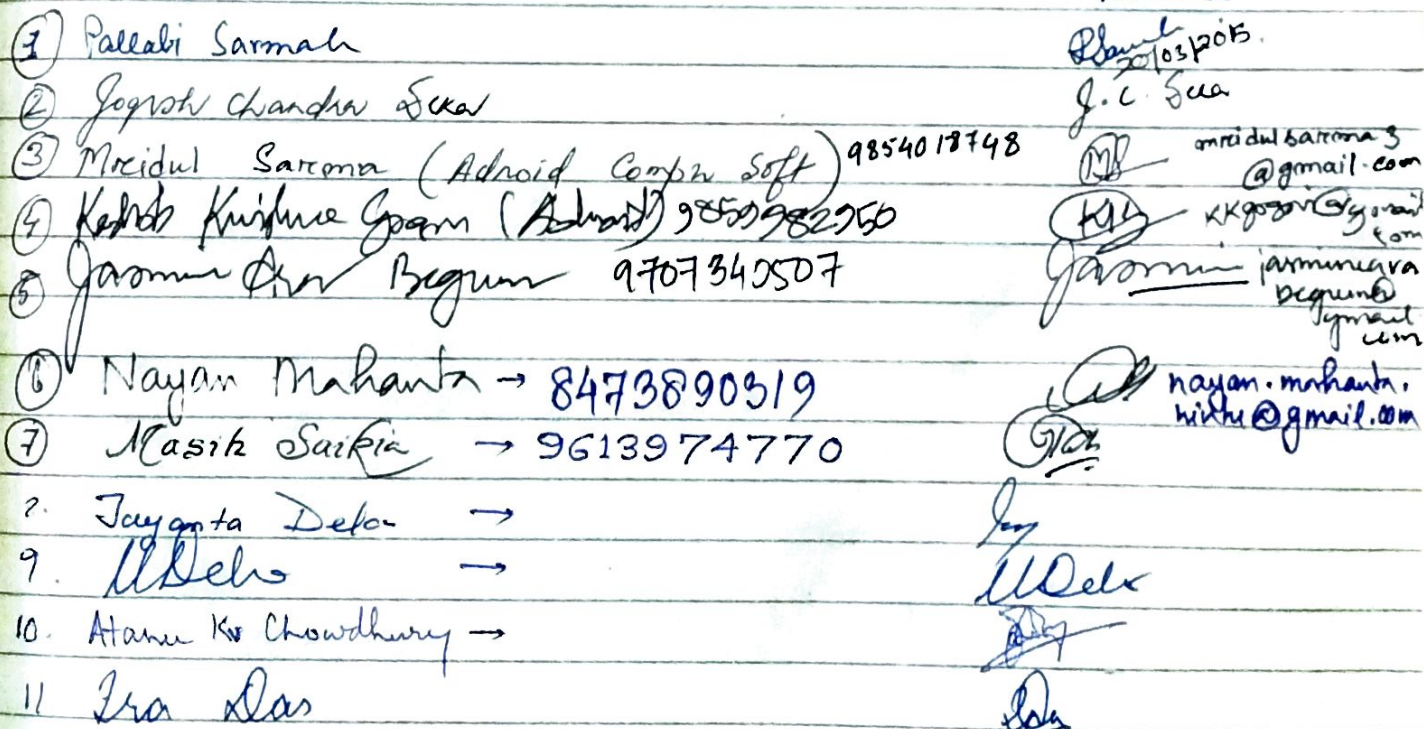 1 Pallabi Sarmah 20/03/2015.
2 Jogesh Chandra J. C.
3 Mridul Sarma (Adroid Compu Soft) 9854018748 mridulsarma3
@gmail.com
4 Keshab Krishna Gogoi (Adroid) 9859982950 KKgogoi@gmail
com
5 Jasmin Ara Begum 9707340507 Jasmin jasmineara
begum@
gmail
com
6 Nayan Mahanta → 8473890319 nayan.mahanta.
@gmail.com
7 Masih Saikia → 9613974770
8. Jayanta Deka →
9. M Deka → M Deka
10. Atanu Kr Chowdhury →
11 Ira Das